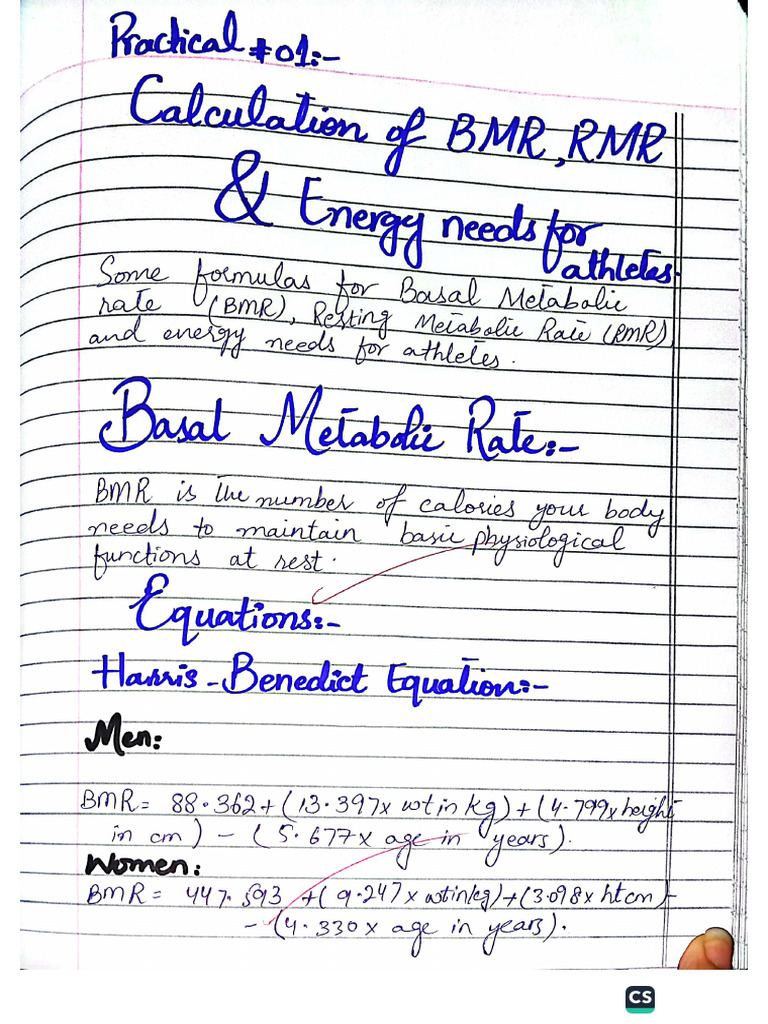 Practical #01:-
Calculation of BMR, RMR
& Energy needs for
athletes.
Some formulas for Basal Metabolic
rate (BMR), Resting Metabolic Rate (RMR)
and energy needs for athletes.
Basal Metabolic Rate:-
BMR is the number of calories your body
needs to maintain basic physiological
functions at rest.
Equations:-
Harris-Benedict Equation:-
Men:
BMR = 88.362 + (13.397x wt in kg) + (4.799x height
in cm) - (5.677x age in years).
Women:
BMR = 447.593 + (9.247 x wt in kg) + (3.098 x ht cm)
- (4.330 x age in years).
CS